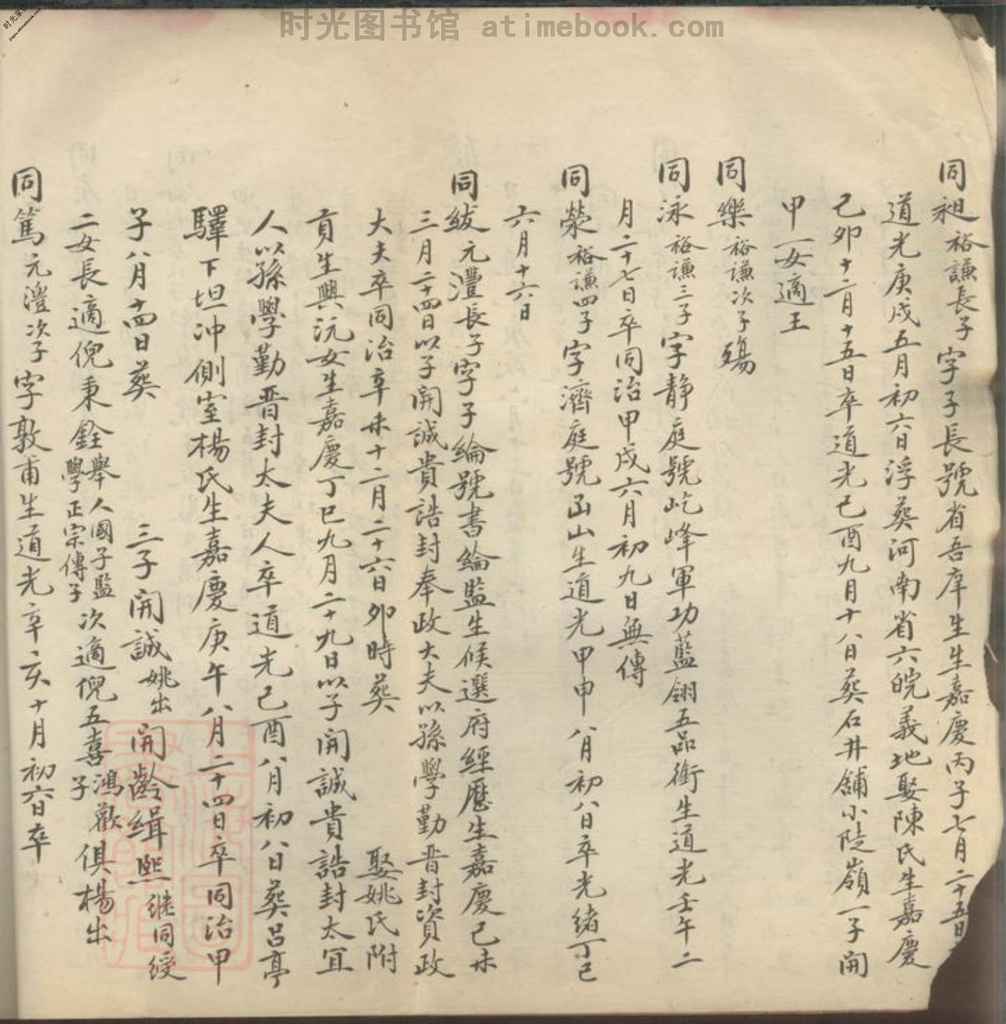 时光图书馆 atimebook.com
同昶裕謙長子字子長號省吾庠生生嘉慶丙子七月二十五日
道光庚戌五月初六日浮葵河南省六皖義地娶陳氏生嘉慶
己卯十二月十五日卒道光己酉九月十八日葵石井舖小陡嶺一子開
甲一女適王
同樂裕謙次子殤
同泳裕謙三子字静庭號屹峰軍功藍翎五品銜生道光壬午二
月二十七日卒同治甲戌六月初九日無傳
同滎裕謙四子字濟庭號函山生道光甲申八月初八日卒光緒丁巳
六月十六日
同紱元灃長子字子綸號書綸監生候選府經歷生嘉慶己未
三月二十四日以子開誠貴誥封奉政大夫以孫學勤晋封資政
大夫卒同治辛未十二月二十六日卯時葵 娶姚氏附
貢生興沅女生嘉慶丁巳九月二十九日以子開誠貴誥封太宜
人以孫學勤晋封太夫人卒道光己酉八月初八日葵呂亭
驛下坦冲側室楊氏生嘉慶庚午八月二十四日卒同治甲
子八月十四日葵 三子開誠姚出開齡緝熙继同綬
二女長適倪秉銓舉人國子監學正宗傳子次適倪五喜鴻歡子俱楊出
同篤元灃次子字敦甫生道光辛亥十月初六日卒